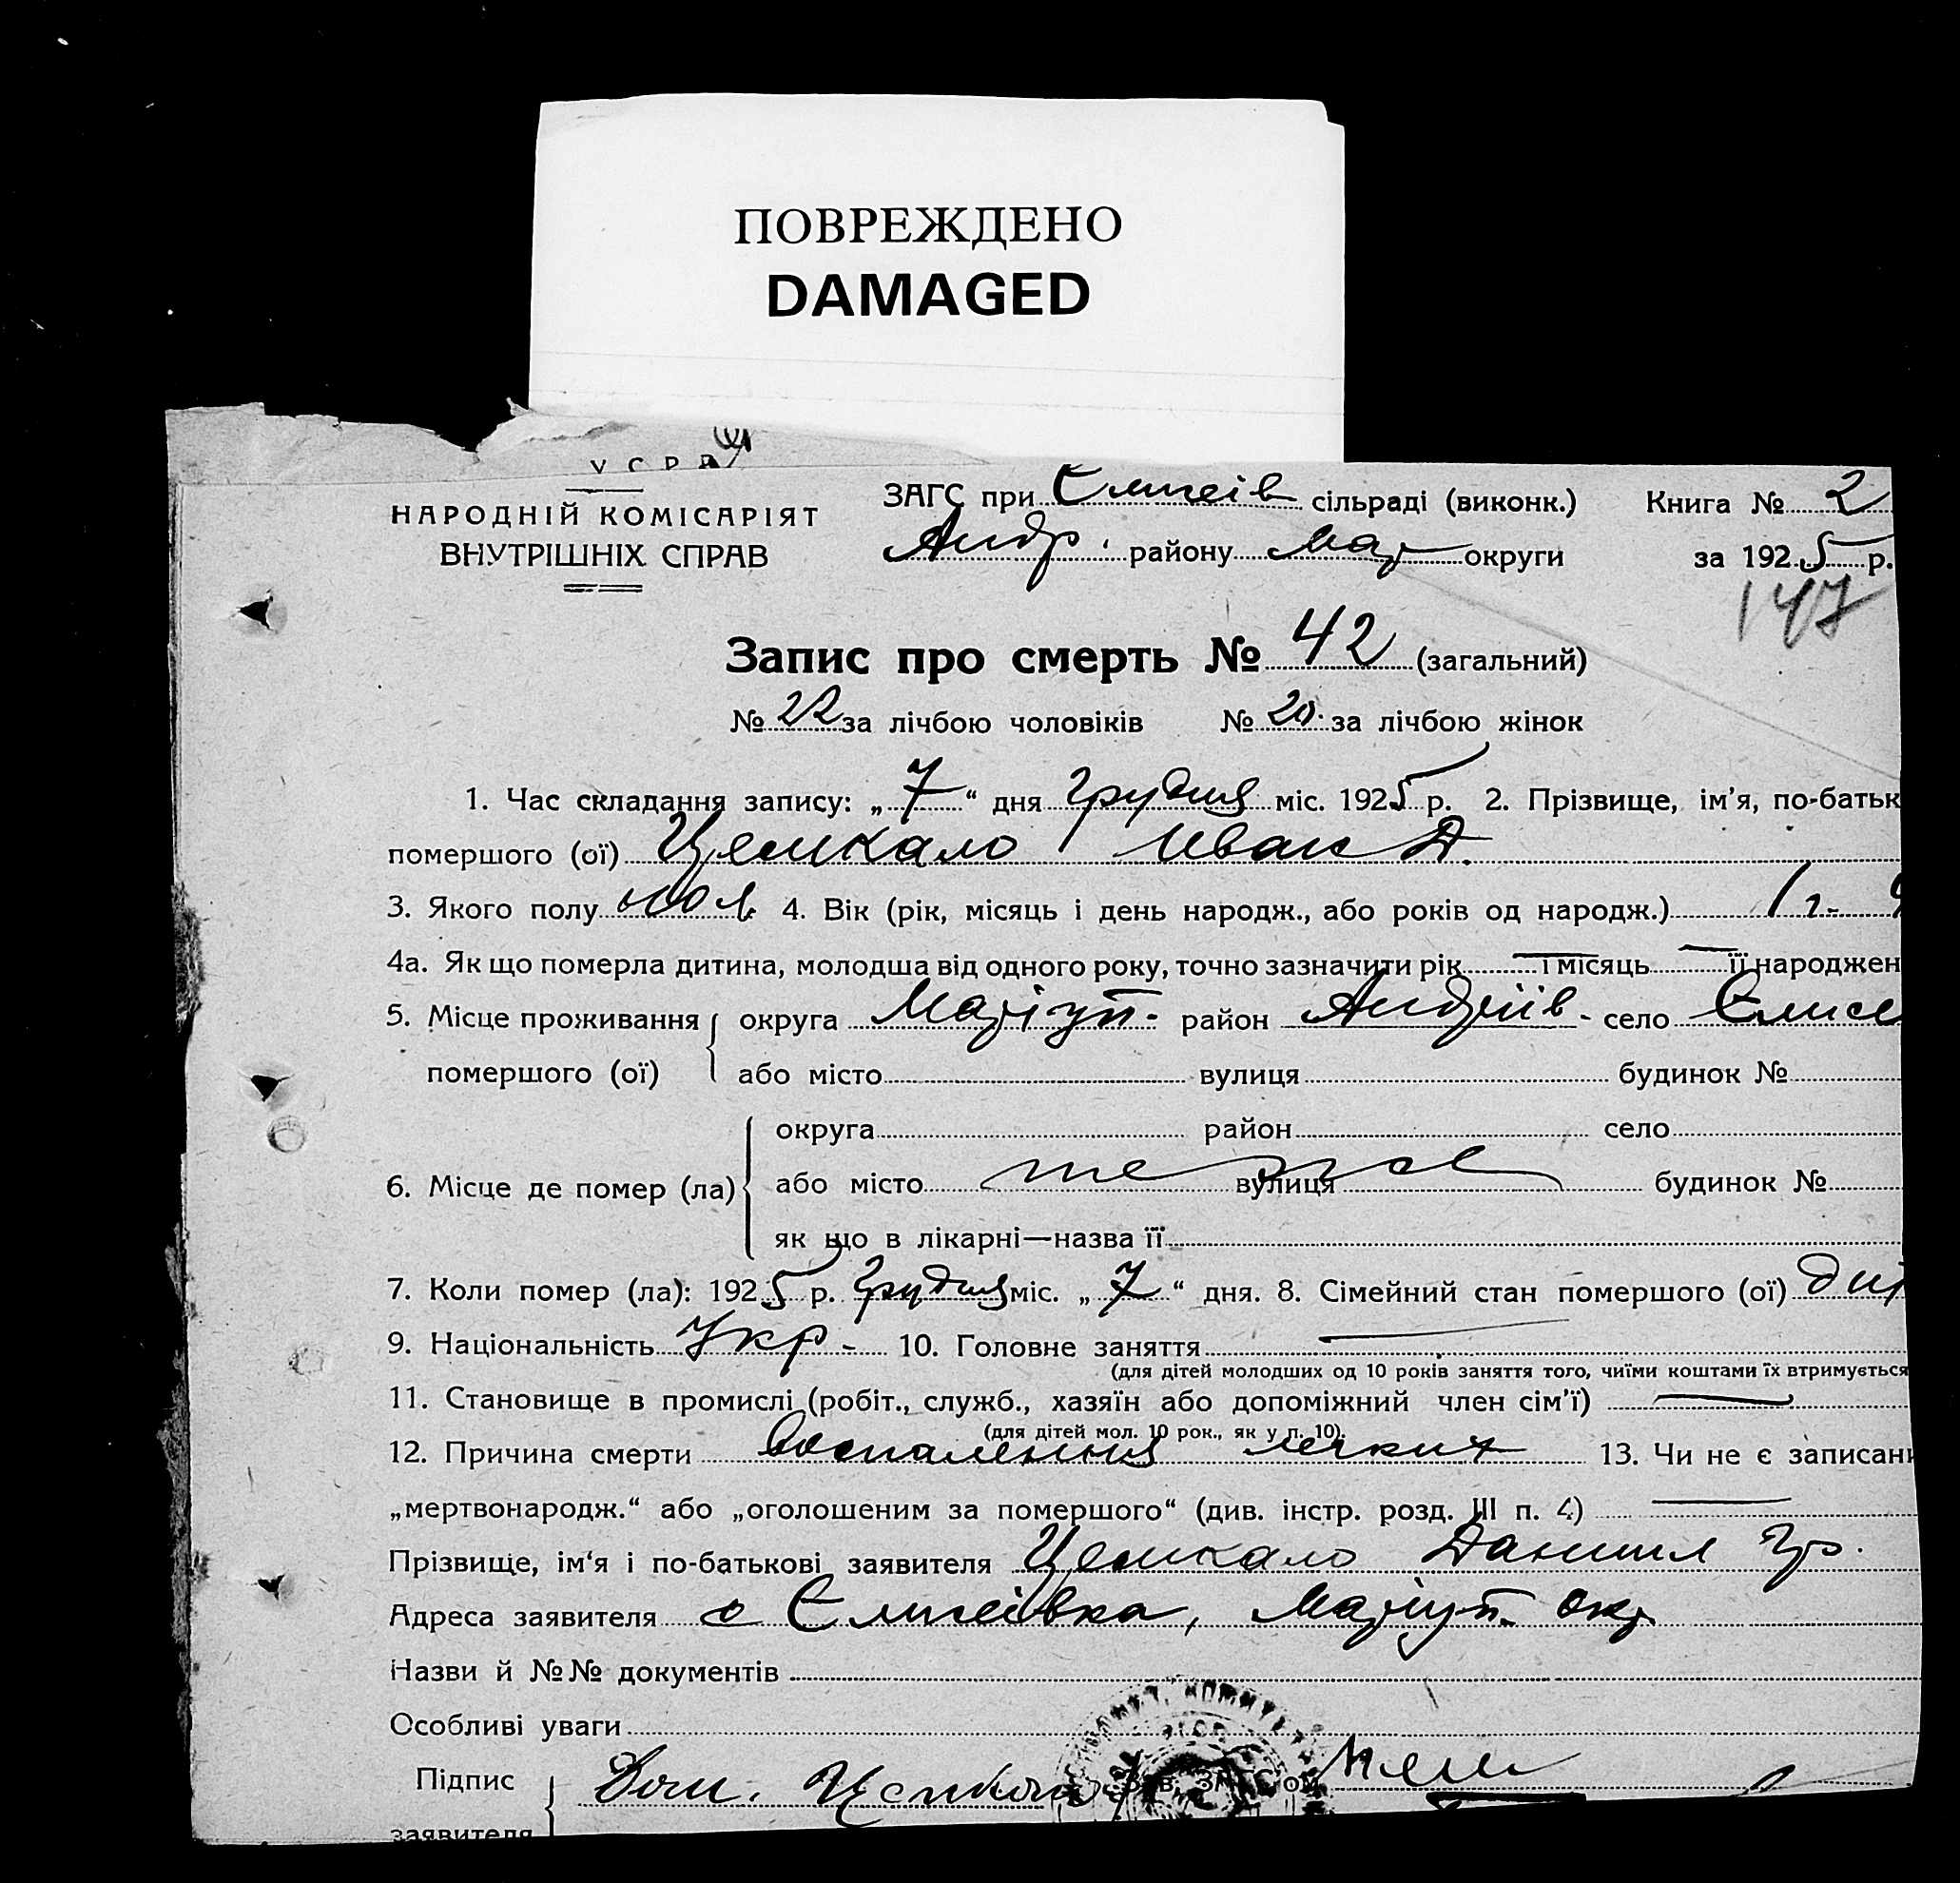 ПОВРЕЖДЕНО
DAMAGED
УСРР
НАРОДНІЙ КОМІСАРІЯТ
ВНУТРІШНІХ СПРАВ
ЗАГС при Єлисеїв сільраді (виконк.) Книга № 2
Андр. району Мар округи за 1925 р.
147
Запис про смерть № 42 (загальний)
№ 22 за лічбою чоловіків № 20 за лічбою жінок
1. Час складання запису: „7“ дня Грудня міс. 1925 р. 2. Прізвище, ім’я, по-батьк
помершого (ої) Цемкало Иван Д.
3. Якого полу чол. 4. Вік (рік, місяць і день народж., або років од народж.) 1 г.
4а. Як що померла дитина, молодша від одного року, точно зазначити рік — і місяць — її народжен
5. Місце проживання округа Маріуп. район Андріїв- село Єлисе
помершого (ої) або місто вулиця будинок №
округа район село
6. Місце де помер (ла) або місто те же вулиця будинок №
як що в лікарні—назва її
7. Коли помер (ла): 1925 р. Грудня міс. „7“ дня. 8. Сімейний стан помершого (ої) дит
9. Національність Укр- 10. Головне заняття —
(для дітей молодших од 10 років заняття того, чиїми коштами їх втримується
11. Становище в промислі (робіт., служб., хазяїн або допоміжний член сім’ї) —
(для дітей мол. 10 рок., як у п. 10).
12. Причина смерти воспаления легких 13. Чи не є записани
„мертвонародж.“ або „оголошеним за помершого“ (див. інстр. розд. III п. 4) —
Прізвище, ім‘я і по-батькові заявителя Цемкало Даниил Гр.
Адреса заявителя с Єлисеївка, Маріуп. окр
Назви й №№ документів
Особливі уваги
Підпис Дан. Цемкало Зав. ЗАГС’ом
заявителя